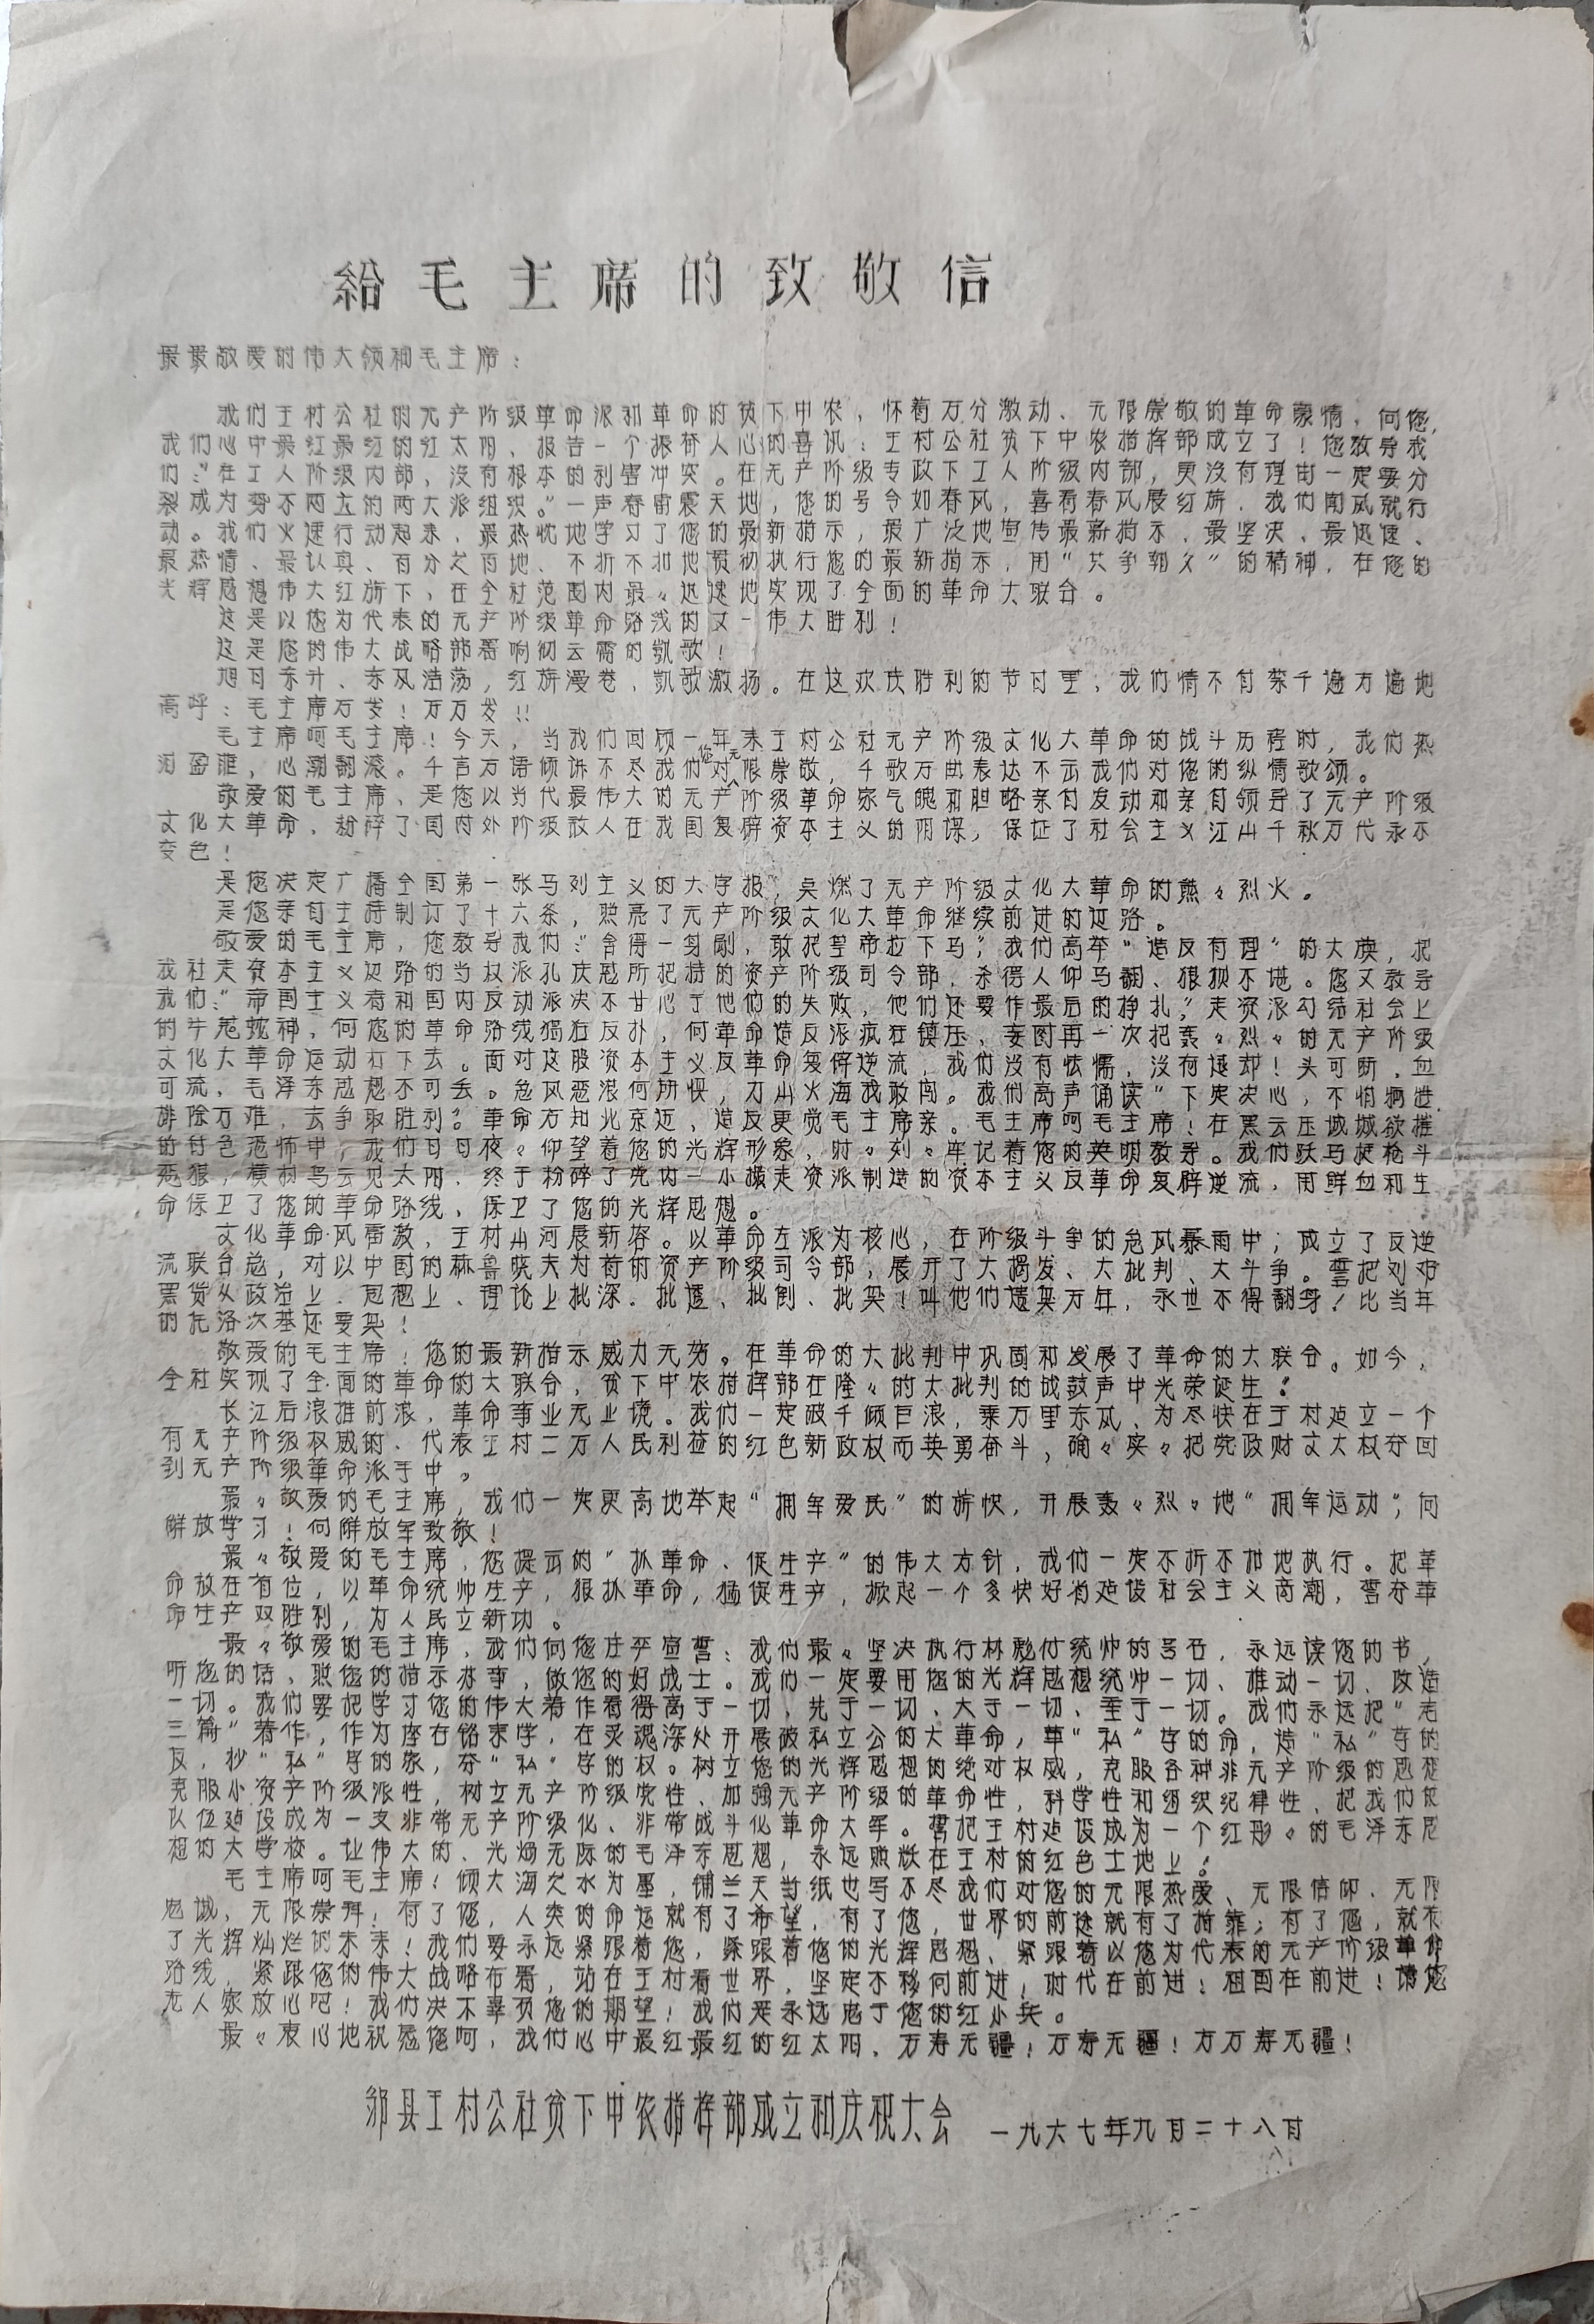 給毛主席的致敬信
最最敬爱的伟大领袖毛主席：
我们王村公社的无产阶级革命派和革命的贫下中农，怀着万分激动、无限崇敬的革命豪情，向您，
我们心中最红最红的红太阳、报告一个振奋人心的喜讯：王村公社贫下中农指挥部成立了！您教导我
们：“在工人阶级内部，没有根本的利害冲突。在无产阶级专政下工人阶级内部，更没有理由一定要分
裂成为势不两立的两大派组织。”一声春雷震天地，您的号令如春风，喜看春风展红旗，我们闻风就行
动。我们火速行动起来，最热忱地学习了您的最新指示，最广泛地宣传最新指示、最坚决、最迅速、
最热情、最认真、百分之百地、不折不扣地贯彻执行您的最新指示，用“只争朝夕”的精神，在您的
光辉思想伟大红旗下，在全社范围内最々迅速地实现了全面的革命大联合。
这是以您为代表的无产阶级革命路线的又一伟大胜利！
这是您的伟大战略部署响彻云霄的凯歌！
旭日东升、东风浩荡，红旗漫卷，凯歌激扬。在这欢庆胜利的节日里，我们情不自禁千遍万遍地
高呼：毛主席万岁！万万岁！！
毛主席呵毛主席！今天，当我们回顾一年来王村公社无产阶级文化大革命的战斗历程时，我们热
泪盈眶，心潮翻滚。千言万语倾诉不尽我们对您无限崇敬，千歌万曲表达不云我们对您的纵情歌颂。
敬爱的毛主席、是您以当代最伟大的无产阶级革命家气魄和胆略亲自发动和亲自领导了无产阶级
文化大革命，粉碎了国内外阶级敌人在我国复辟资本主义的阴谋，保证了社会主义江山千秋万代永不
变色！
是您决定广播全国第一张马列主义的大字报，点燃了无产阶级文化大革命的熊々烈火。
是您亲自主持制订了十六条，照亮了无产阶级文化大革命继续前进的道路。
敬爱的毛主席，您教导我们：“舍得一身剐，敢把皇帝拉下马”，我们高举“造反有理”的大旗，把
我社走资本主义道路的当权派孔庆冠所把持的资产阶级司令部，杀得人仰马翻、狼狈不堪。您又教导
我们：“帝国主义者和国内反动派决不甘心于他们的失败，他们还要作最后的挣扎”，走资派勾结社会上
的牛鬼蛇神，向您的革命路线猖狂反扑，向革命造反派疯狂镇压、妄图再一次把轰々烈々的无产阶级
文化大革命运动打下去。面对这股资本主义反革命复辟逆流，我们没有怯懦，没有退却！头可断，血
可流，毛泽东思想不可丢。急风恶浪何所惧，刀山火海我敢闯。我们高声诵读“下定决心，不怕牺牲，
排除万难，去争取胜利”。革命方知北京近，造反更觉毛主席亲。毛主席呵毛主席！在黑云压城城欲摧
的白色恐怖中，我们日日夜々仰望着您的光辉形象，时々刻々牢记着您的英明教导。我们跃马挺枪斗
恶狼，横扫乌云见太阳，终于粉碎了党内一小撮走资派制造的资本主义反革命复辟逆流，用鲜血和生
命保卫了您的革命路线，保卫了您的光辉思想。
文化革命风雷激，王村山河展新容。以革命左派为核心，在阶级斗争的急风暴雨中，成立了反逆
流联合总，对以中国的赫鲁晓夫为首的资产阶级司令部，展开了大揭发、大批判、大斗争。誓把刘邓
黑货从政治上、思想上、理论上批深、批透、批倒、批臭！叫他们遗臭万年，永世不得翻身！比当年
的托洛次基还要臭！
敬爱的毛主席！您的最新指示威力无穷。在革命的大批判中巩固和发展了革命的大联合。如今，
全社实现了全面的革命的大联合，贫下中农指挥部在隆々的大批判的战鼓声中光荣诞生！
长江后浪推前浪，革命事业无止境。我们一定破千倾巨浪，乘万里东风、为尽快在王村建立一个
有无产阶级权威的、代表王村二万人民利益的红色新政权而英勇奋斗，确々实々把党政财文大权夺回
到无产阶级革命派手中。
最々敬爱的毛主席，我们一定更高地举起“拥军爱民”的旗帜，开展轰々烈々地“拥军运动”，向
解放学习！向解放军致敬！
最々敬爱的毛主席，您提出的“抓革命、促生产”的伟大方针，我们一定不折不扣地执行。把革
命放在首位，以革命统帅生产，狠抓革命，猛促生产，掀起一个多快好省建设社会主义高潮，誓夺革
命生产双胜利，为人民立新功。
最々敬爱的毛主席，我们向您庄严宣誓：我们最々坚决执行林彪付统帅的号召，永远读您的书，
听您的话、照您的指示办事，做您的好战士。我们一定要用您的光辉思想统帅一切、推动一切、改造
一切。我们要把学习您的伟大著作看得高于一切，先于一切、大于一切、重于一切。我们永远把“老
三篇”著作，作为座右铭来学，在灵魂深处开展破私立公的大革命，革“私”字的命，造“私”字的
反，抄“私”字的家，夺“私”字的权。树立您的光辉思想的绝对权威，克服各种非无产阶级的思想
克服小资产阶级派性，树立无产阶级党性、加强无产阶级的革命性，科学性和组织纪律性、把我们的
队伍建设成为一支非常无产阶级化、非常战斗化革命大军。誓把王村建设成为一个红彤々的毛泽东思
想的大学校。让伟大的、光焰无际的毛泽东思想，永远照耀在王村的红色土地上！
毛主席呵毛主席！倾大海之水为墨，铺兰天当纸也写不尽我们对您的无限热爱、无限信仰、无限
忠诚，无限崇拜！有了您，人类的命运就有了希望，有了您，世界的前途就有了指靠；有了您，就有
了光辉灿烂的未来！我们要永远紧跟着您，紧跟着您的光辉思想、紧跟着以您为代表的无产阶级革命
路线，紧跟您的伟大战略布署，站在王村看世界，坚定不移向前进！时代在前进！祖国在前进！请您
老人家放心吧！我们决不辜负您的期望！我们是永远忠于您的红小兵。
最々衷心地祝愿您呵，我们心中最红最红的红太阳、万寿无疆！万寿无疆！万万寿无疆！
邹县王村公社贫下中农指挥部成立和庆祝大会 一九六七年九月二十八日